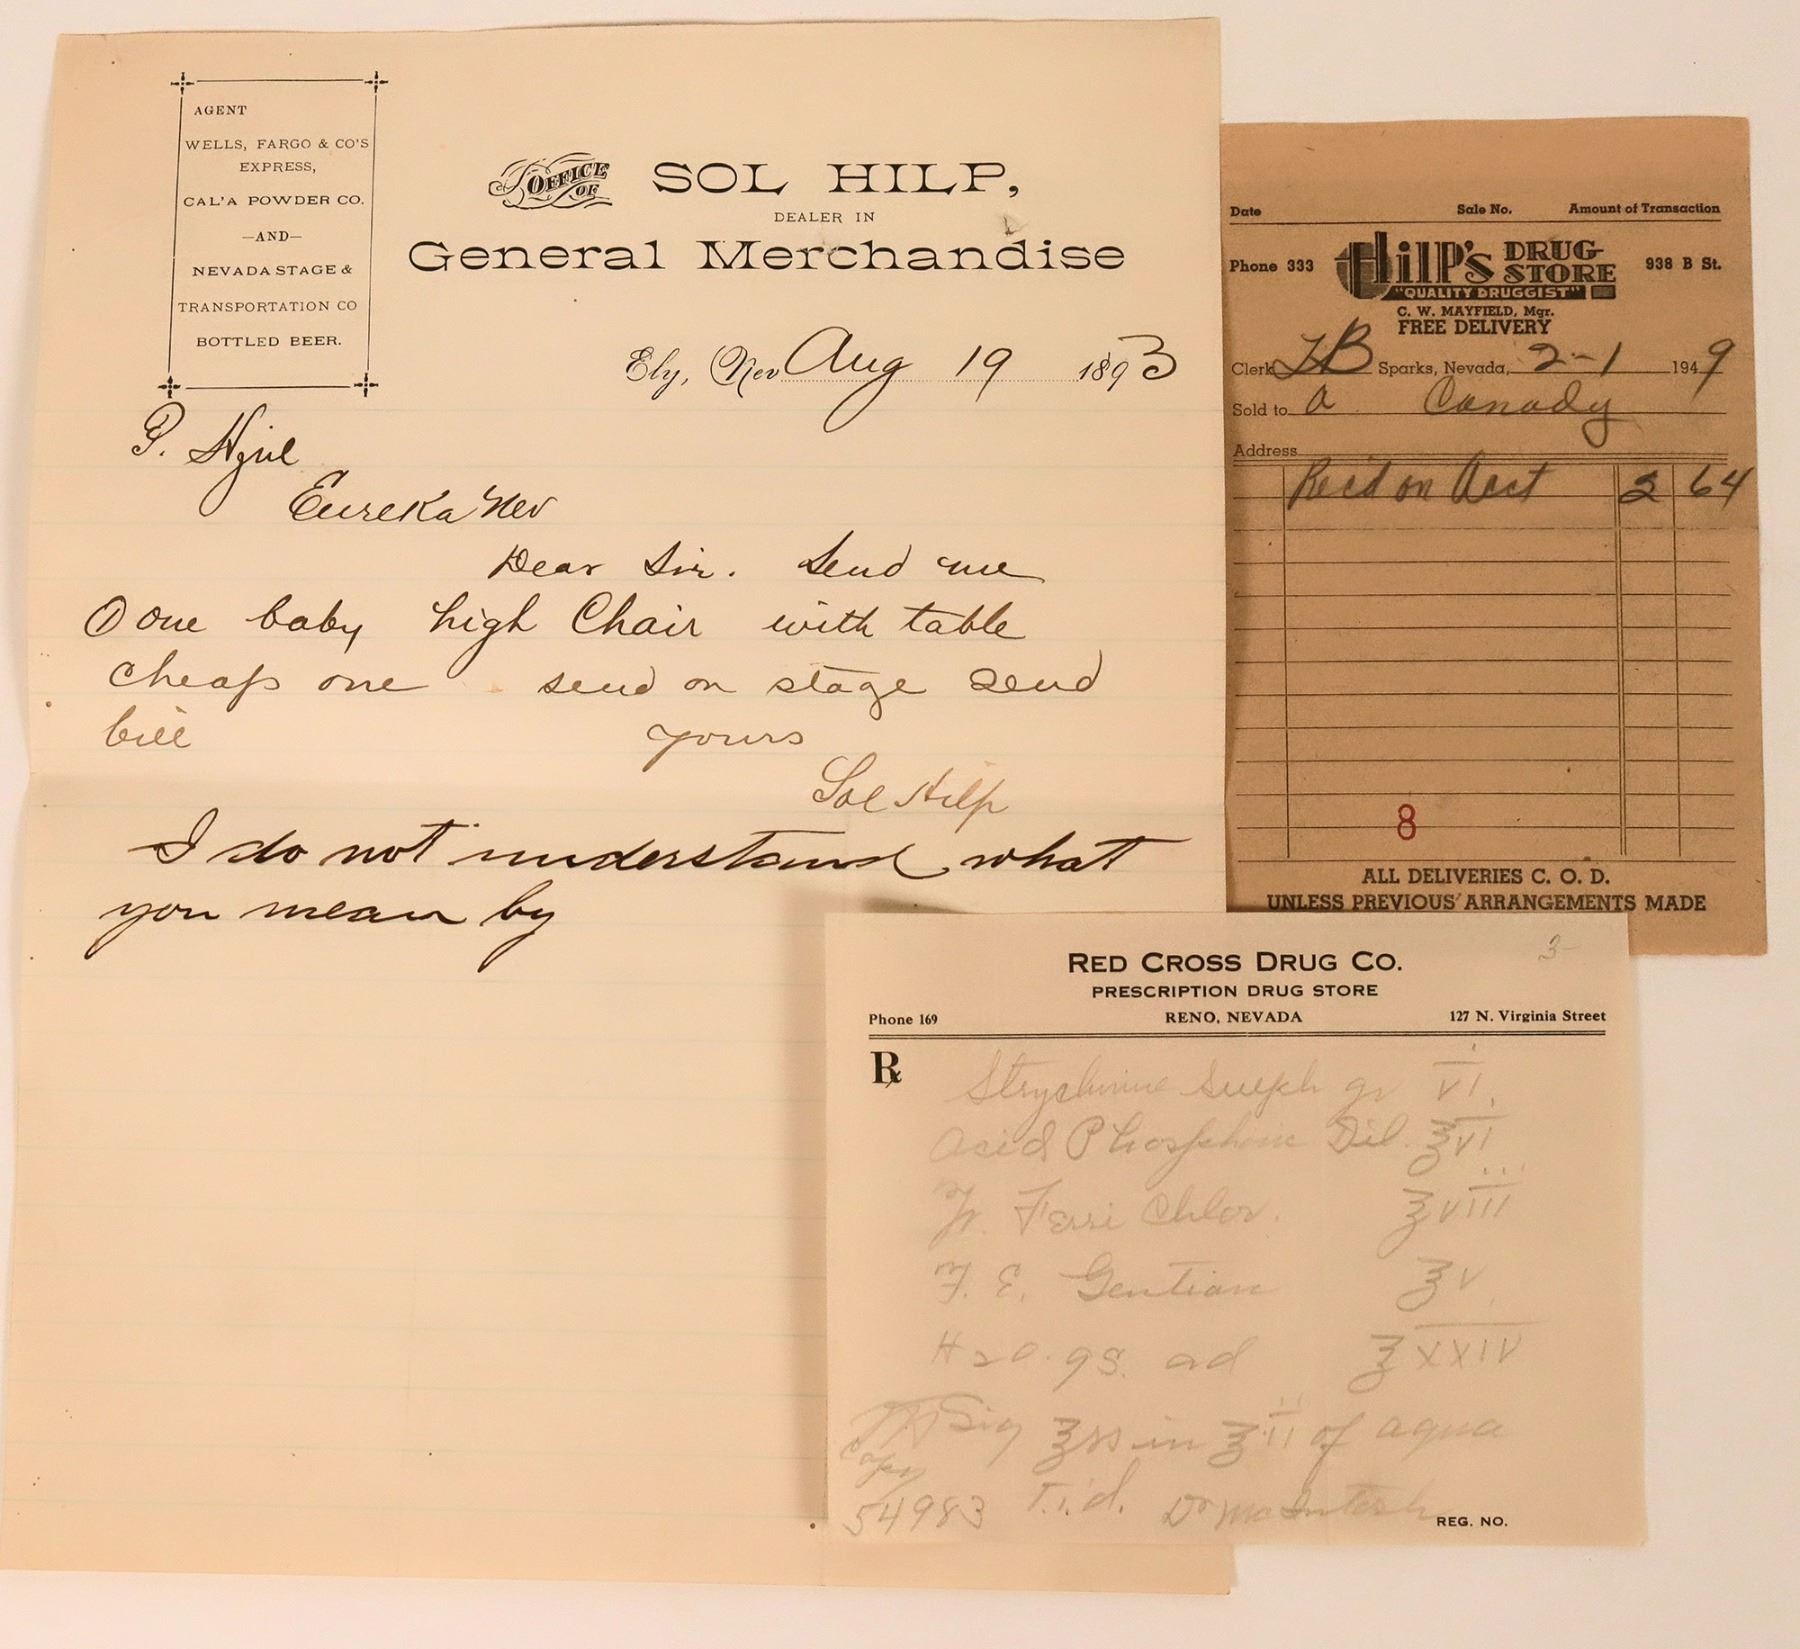 AGENT
WELLS, FARGO & CO'S
EXPRESS,
CAL'A POWDER CO.
—AND—
NEVADA STAGE &
TRANSPORTATION CO
BOTTLED BEER.
OFFICE OF SOL HILP,
DEALER IN
General Merchandise
Ely, Nev Aug 19 1893
P.
Eureka Nev
Dear Sir. Send me
one baby high Chair with table
cheap one send on stage send
bill yours
Sol Hilp
I do not understand what
you mean by
Date Sale No. Amount of Transaction
Phone 333 Hilp's DRUG STORE 938 B St.
"QUALITY DRUGGIST"
C. W. MAYFIELD, Mgr.
FREE DELIVERY
Clerk Sparks, Nevada, 2-1 1949
Sold to A Canady
Address
Rec'd on Acct 2 64
8
ALL DELIVERIES C. O. D.
UNLESS PREVIOUS ARRANGEMENTS MADE
3-
RED CROSS DRUG CO.
PRESCRIPTION DRUG STORE
Phone 169 RENO, NEVADA 127 N. Virginia Street
℞ Strychnine Sulph gr VI.
Acid Phosphoric Dil. ℥VI
Tr. Ferri Chlor. ℥VIII
F. E. Gentian ℥V
H2O. qs. ad ℥XXIV
Sig ʒss in ℥II of aqua
Copy
54983 T.i.d. Dr McIntosh REG. NO.